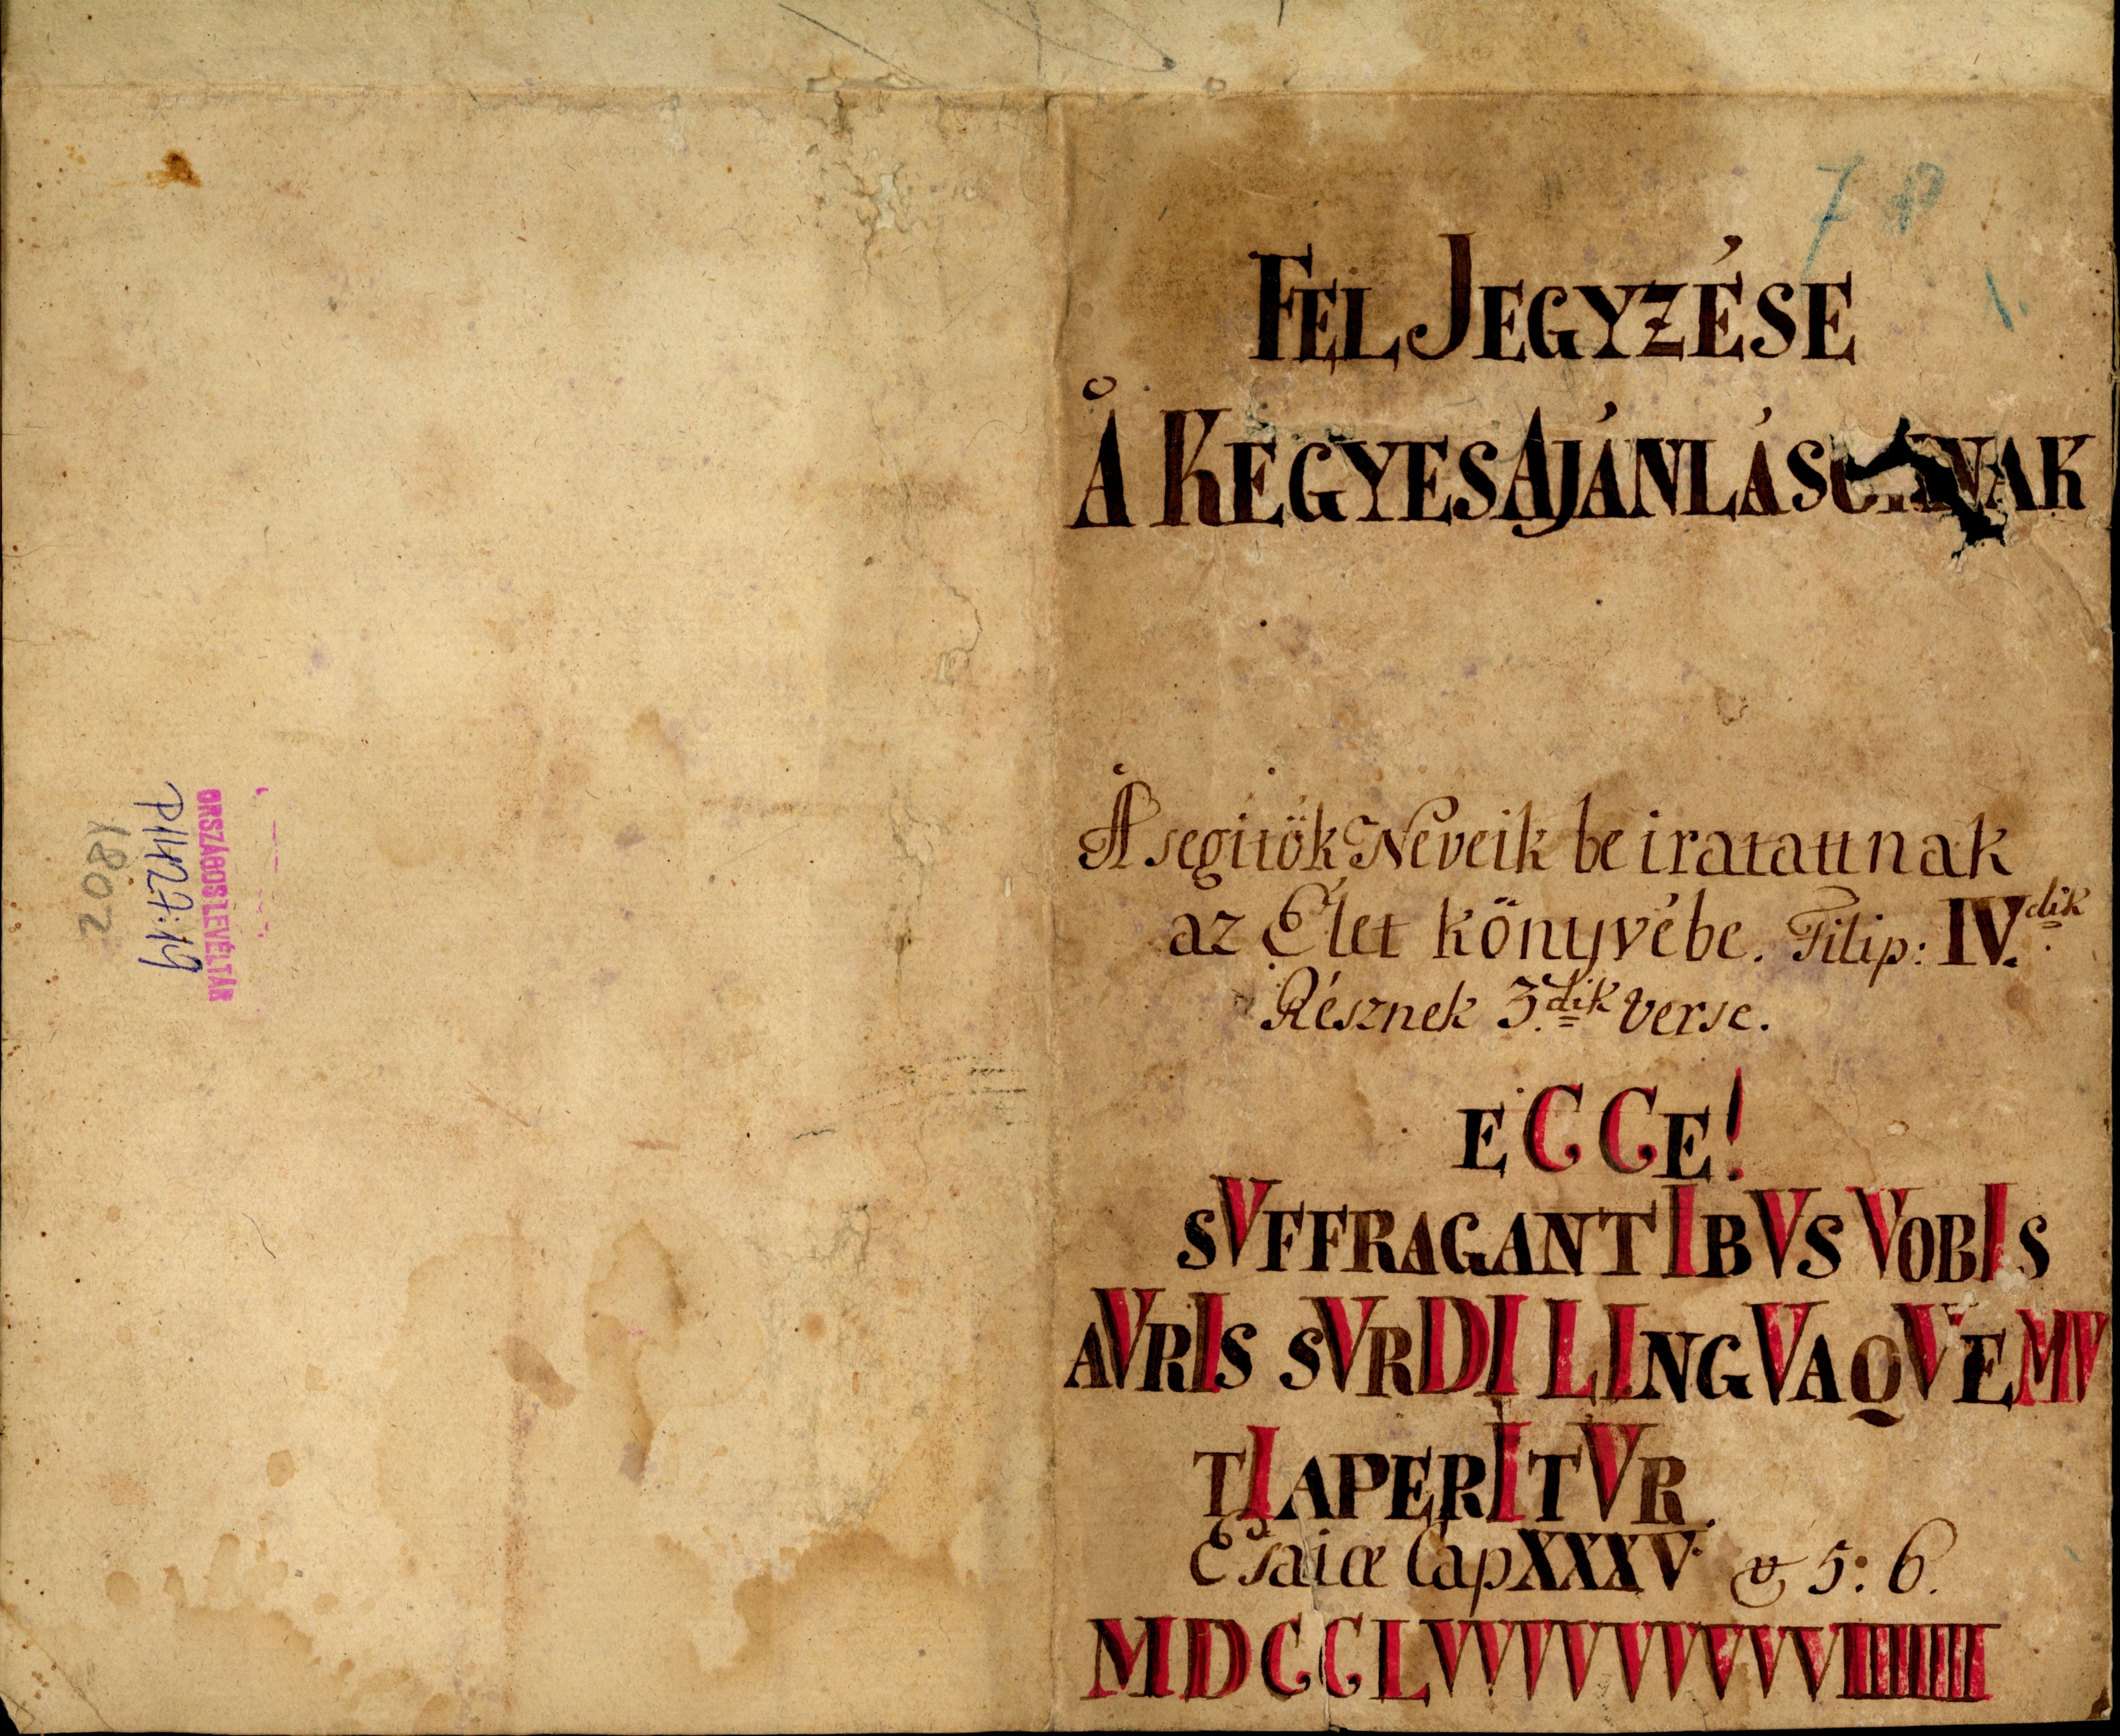 7 8
1.
FEL JEGYZÉSE
Å KEGYES AJÁNLÁSOKNAK
Å segitök Neveik be iratattnak
az Élet könyvébe. Filip: IV.dik
Résznek 3.dik verse.
ECCE!
SVFFRAGANTIBVS VOBIS
AVRIS SVRDI LINGVAQVE MV
TI APERITVR.
Esaiæ Cap XXXV. v 5: 6.
MDCCLVVVVVVVVVIIIIIIII
ORSZÁGOS LEVÉLTÁR
P1427:14
2081